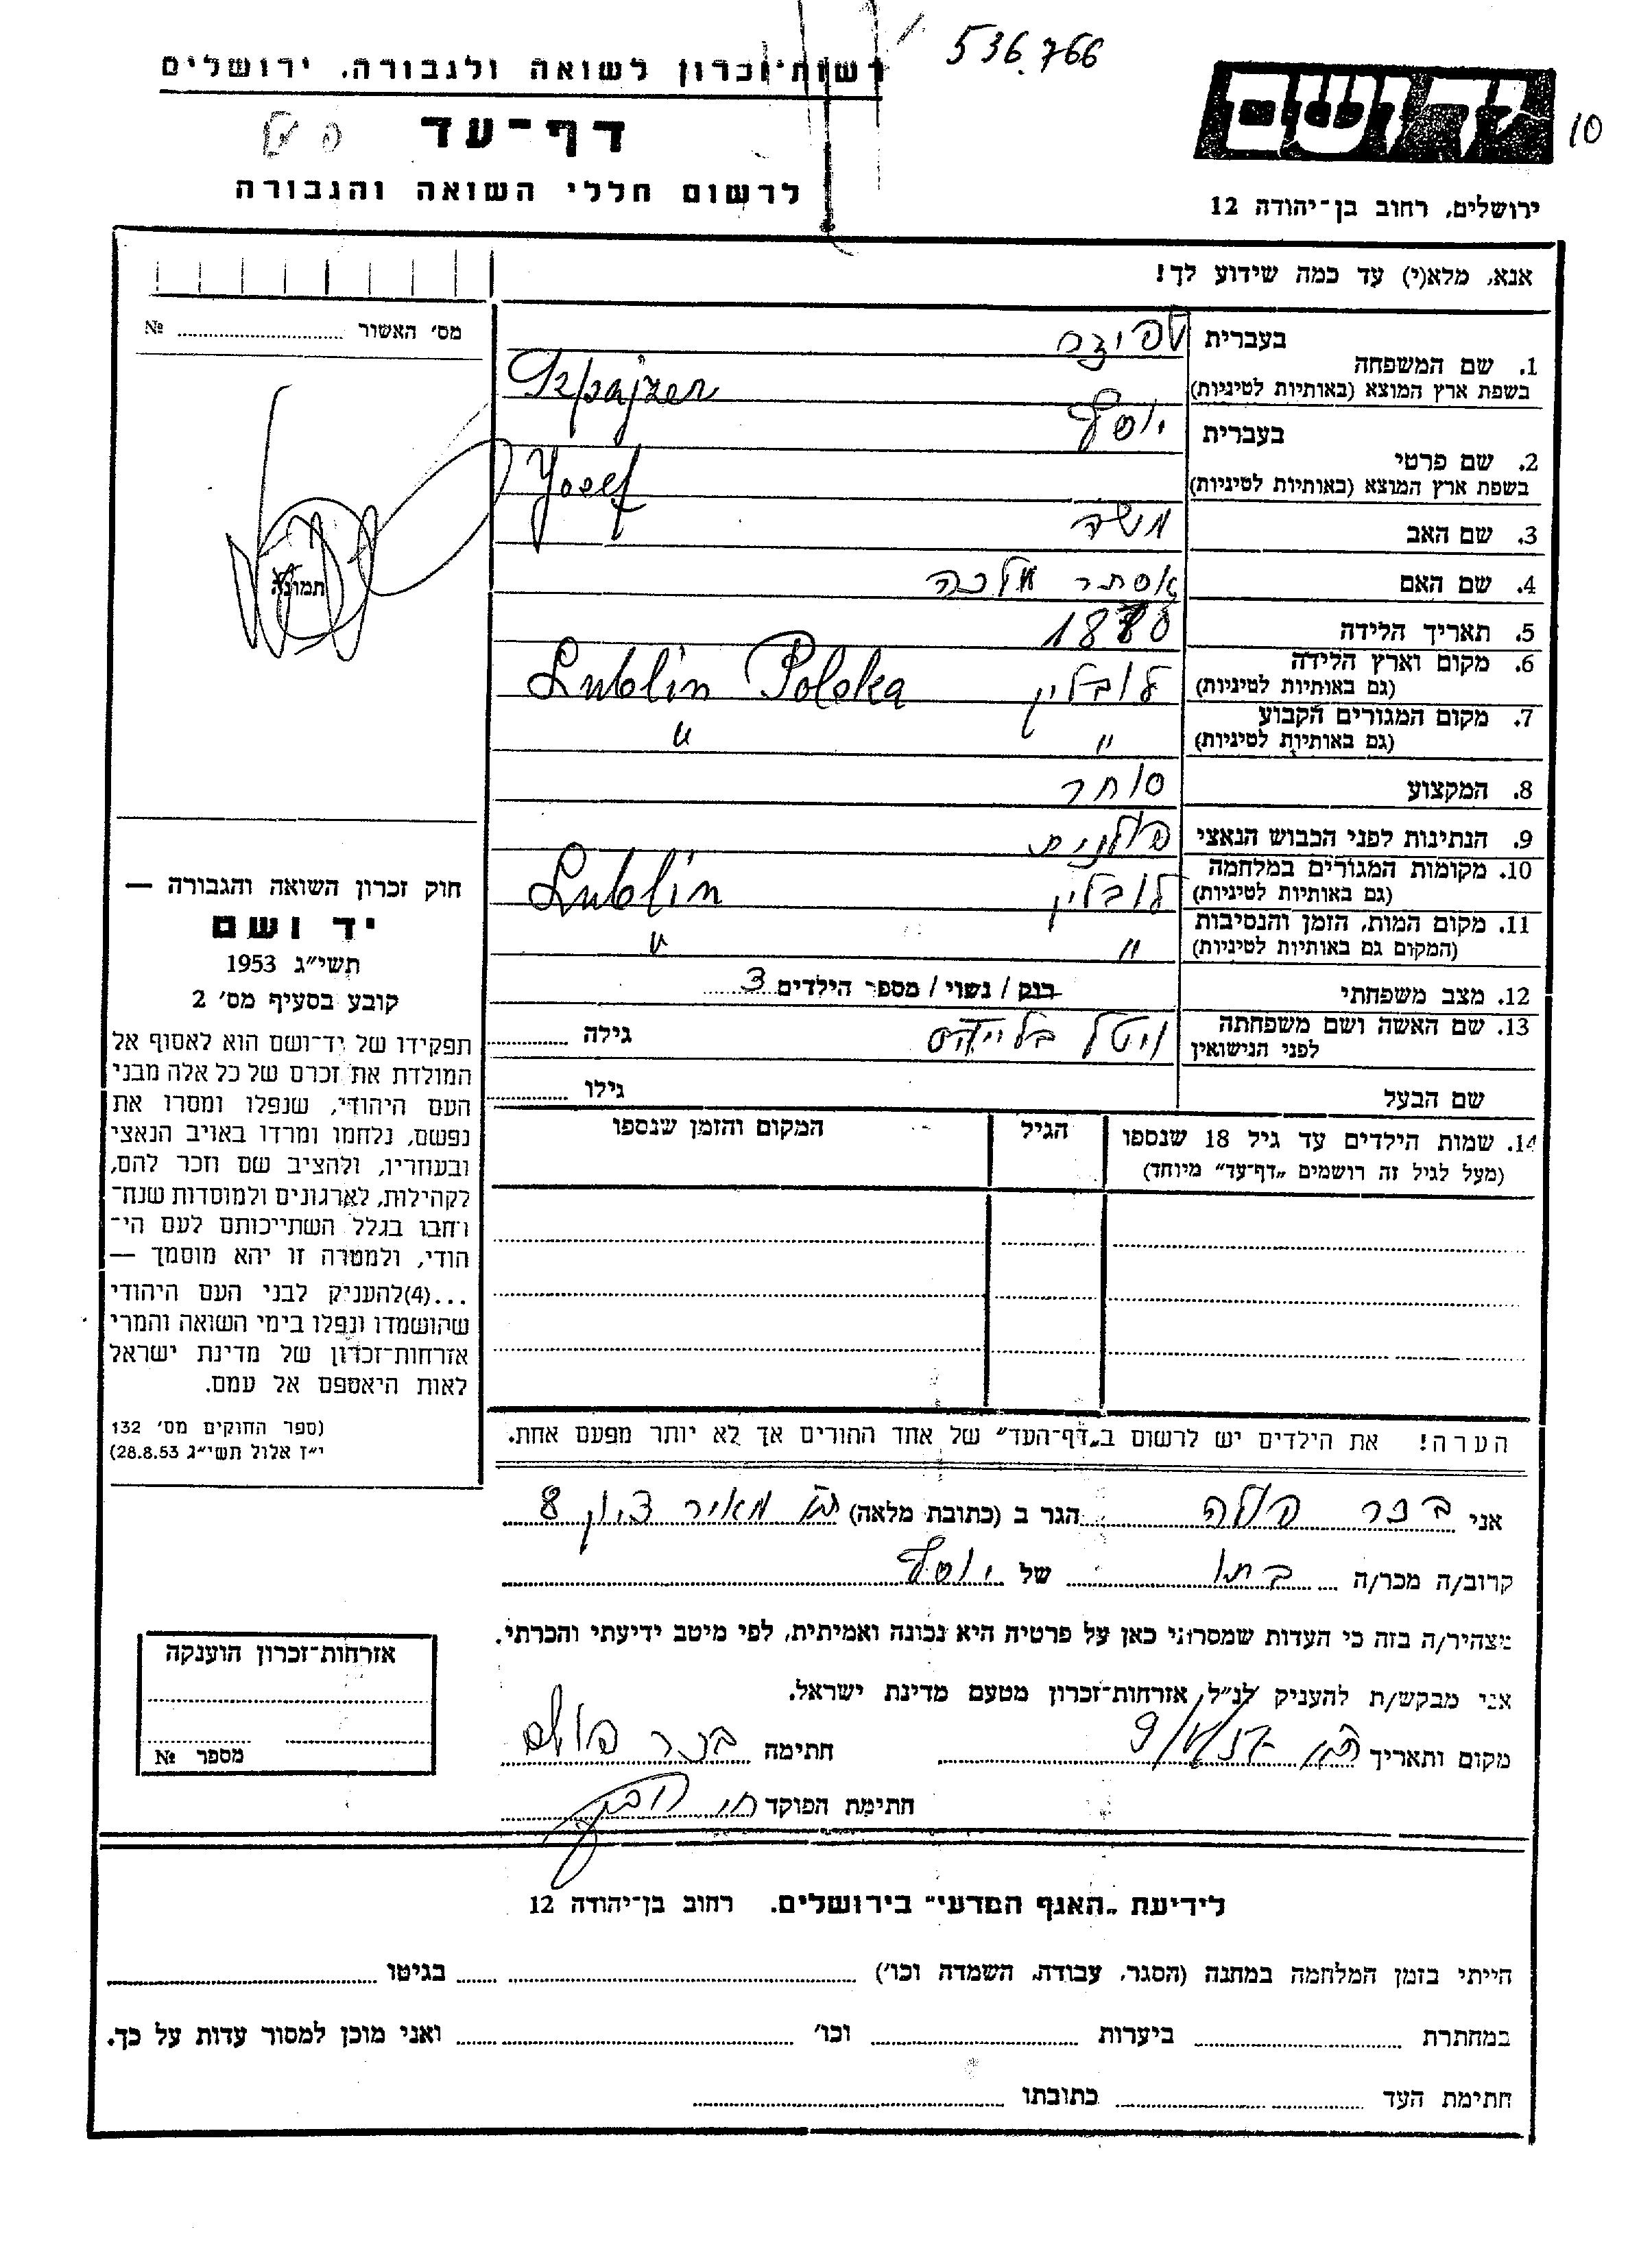 536.766
רשות־זכרון לשואה ולגבורה, ירושלים
דף־עד
לרשום חללי השואה והגבורה
יד ושם
10
ירושלים, רחוב בן־יהודה 12
אנא, מלא(י) עד כמה שידוע לך!
מס׳ האשור № 
תמונה
1. שם המשפחה
בעברית
בשפת ארץ המוצא (באותיות לטיניות) Szpajzer
2. שם פרטי
בעברית יוסף
בשפת ארץ המוצא (באותיות לטיניות) Yosef
3. שם האב משה
4. שם האם אסתר מלכה
5. תאריך הלידה
6. מקום וארץ הלידה
(גם באותיות לטיניות) לובלין Lublin Polska
7. מקום המגורים הקבוע
(גם באותיות לטיניות) " "
8. המקצוע סוחר
9. הנתינות לפני הכבוש הנאצי פולנית
10. מקומות המגורים במלחמה
(גם באותיות לטיניות) לובלין Lublin
11. מקום המות, הזמן והנסיבות
(המקום גם באותיות לטיניות) " "
12. מצב משפחתי רוק / נשוי / מספר הילדים 3
13. שם האשה ושם משפחתה
לפני הנישואין גילה
שם הבעל גילו
14. שמות הילדים עד גיל 18 שנספו הגיל המקום והזמן שנספו
(מעל לגיל זה רושמים „דף־עד״ מיוחד)
חוק זכרון השואה והגבורה —
יד ושם
תשי״ג 1953
קובע בסעיף מס׳ 2
תפקידו של יד־ושם הוא לאסוף אל
המולדת את זכרם של כל אלה מבני
העם היהודי, שנפלו ומסרו את
נפשם, נלחמו ומרדו באויב הנאצי
ובעוזריו, ולהציב שם וזכר להם,
לקהילות, לארגונים ולמוסדות שנח־
רחבו בגלל השתייכותם לעם הי־
הודי, ולמטרה זו יהא מוסמך —
...(4)להעניק לבני העם היהודי
שהושמדו ונפלו בימי השואה והמרי
אזרחות־זכרון של מדינת ישראל
לאות היאספם אל עמם.
(ספר החוקים מס׳ 132
י״ז אלול תשי״ג 28.8.53)
הערה! את הילדים יש לרשום ב„דף־העד״ של אחד ההורים אך לא יותר מפעם אחת.
אני בכר פולה הגר ב (כתובת מלאה) מאיר 8
קרוב/ה מכר/ה בתו של יוסף
מצהיר/ה בזה כי העדות שמסרתי כאן על פרטיה היא נכונה ואמיתית, לפי מיטב ידיעתי והכרתי.
אני מבקש/ת להעניק לנ״ל אזרחות־זכרון מטעם מדינת ישראל.
מקום ותאריך חתימה בכר פולה
חתימת הפוקד
אזרחות־זכרון הוענקה
מספר №
לידיעת „האגף המדעי״ בירושלים, רחוב בן־יהודה 12
הייתי בזמן המלחמה במחנה (הסגר, עבודה, השמדה וכו׳) בגיטו
במחתרת ביערות וכו׳ ואני מוכן למסור עדות על כך.
חתימת העד כתובתו